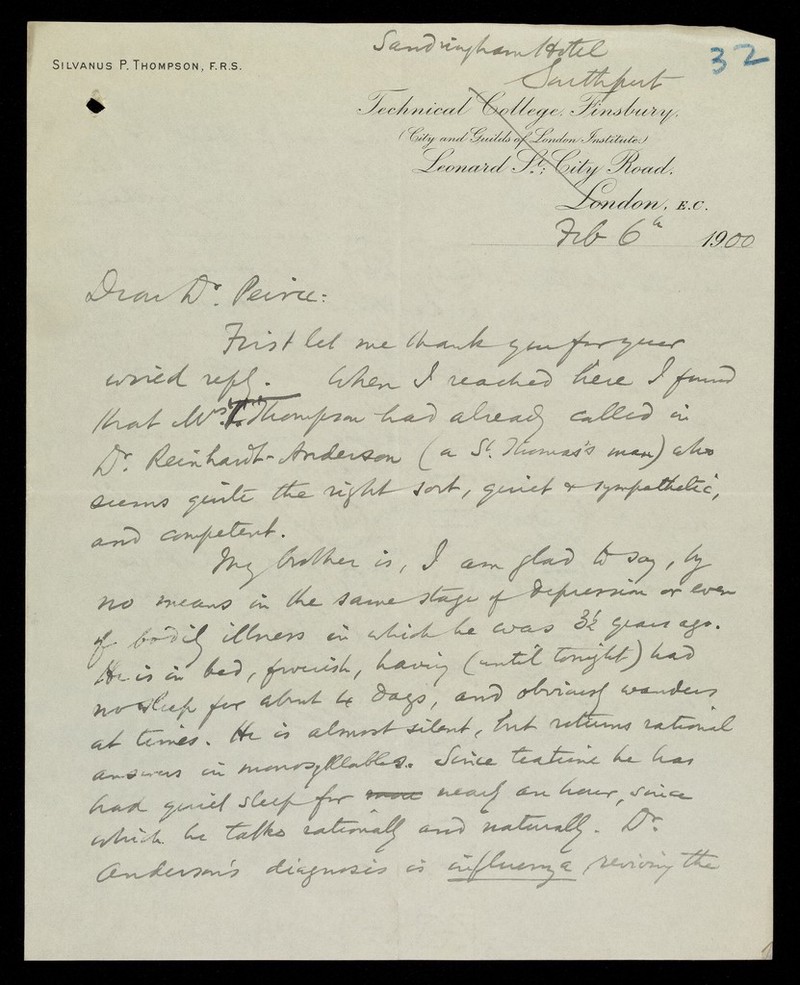 32
Sandringham Hotel
Southport
SILVANUS P. THOMPSON, F.R.S.
Technical College, Finsbury.
(City and Guilds of London Institute.)
Leonard St; City Road.
London, E.C.
Feb 6th 1900
Dear Dr. Peirce:
First let me thank you for your
wired reply. When I reached here I found
that Mrs. Thompson had already called in
Dr. Reinhardt-Anderson (a St. Thomas's man) who
seems quite the right sort, quiet & sympathetic,
and competent.
My brother is, I am glad to say, by
no means in the same stage of depression or even
of bodily illness in which he was 3½ years ago.
He is in bed, feverish, having (until tonight) had
no sleep for about 4 days, and obviously wanders
at times. He is almost silent, but returns rational
answers in monosyllables. Since teatime he has
had quiet sleep for nearly an hour, since
which he talks rationally and naturally. Dr.
Anderson's diagnosis is influenza reviving the